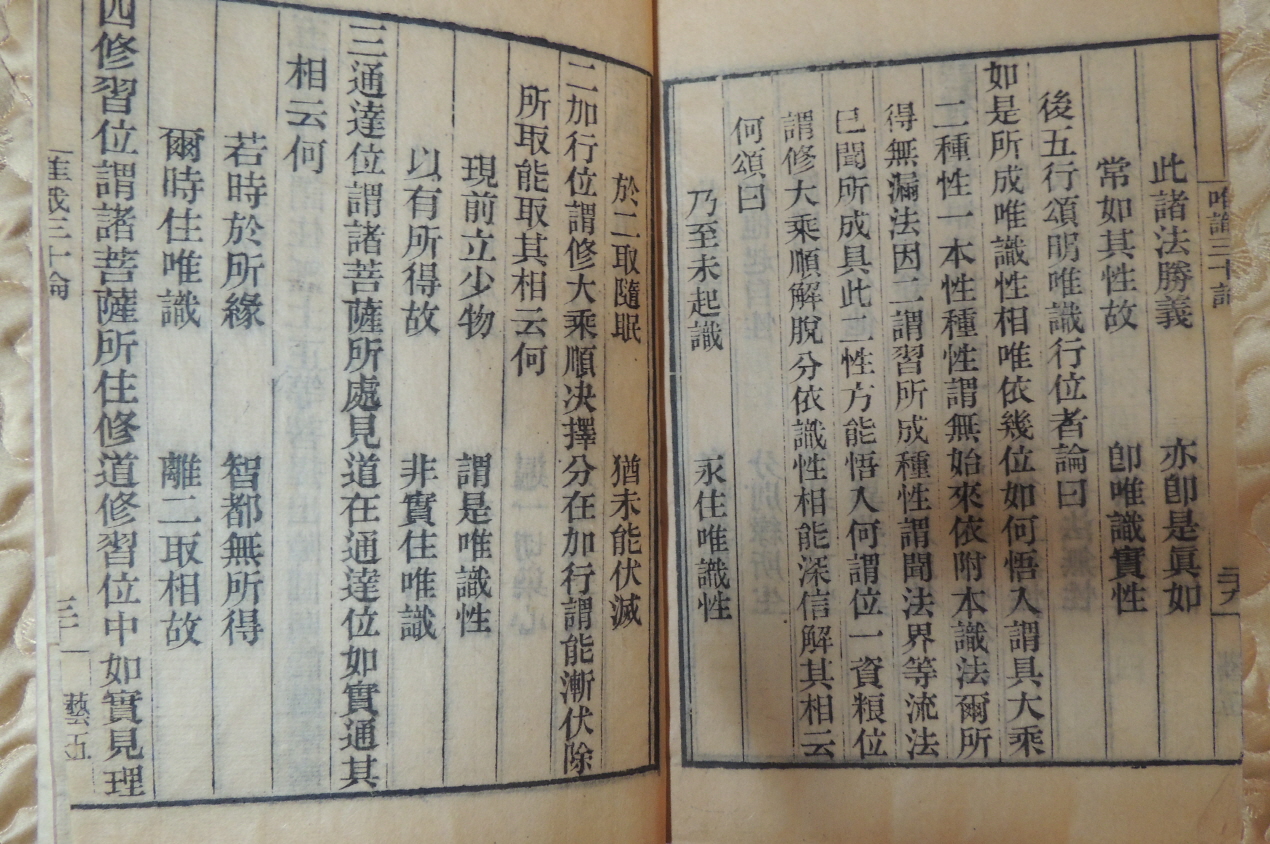 唯識三十論
二十九
此諸法勝義　亦卽是眞如
常如其性故　卽唯識實性
後五行頌明唯識行位者論曰
如是所成唯識性相唯依幾位如何悟入謂具大乘
二種性一本性種性謂無始來依附本識法爾所
得無漏法因二謂習所成種性謂聞法界等流法
已聞所成具此二性方能悟入何謂位一資粮位
謂修大乘順解脫分依識性相能深信解其相云
何頌曰
乃至未起識　求住唯識性
於二取隨眠　猶未能伏滅
二加行位謂修大乘順决擇分在加行謂能漸伏除
所取能取其相云何
現前立少物　謂是唯識性
以有所得故　非實住唯識
三通達位謂諸菩薩所處見道在通達位如實通其
相云何
若時於所緣　智都無所得
爾時住唯識　離二取相故
四修習位謂諸菩薩所住修道修習位中如實見理
唯識三十論
三十
藝五